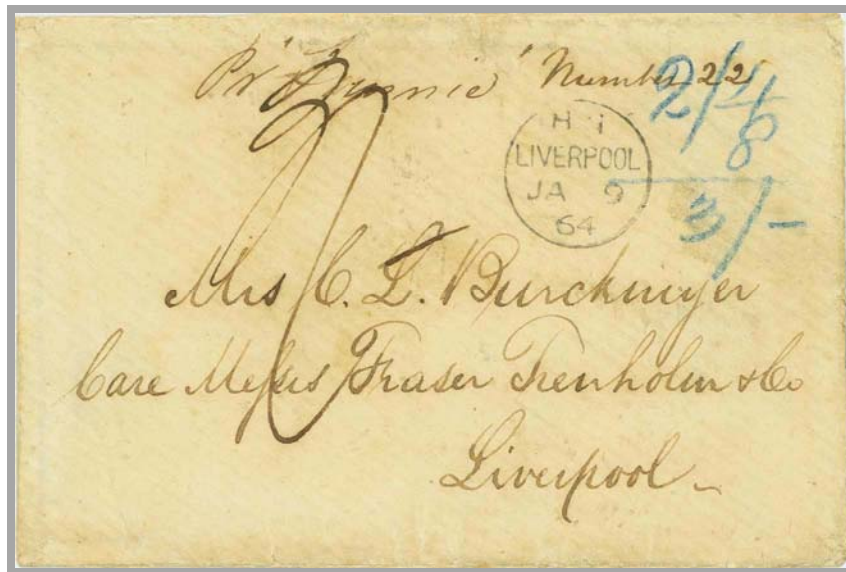 Pr "Fannie" Number 22
2/4/8
H 1
LIVERPOOL
JA 9
64
3/-
Mrs C. L. Burckmyer
Care Messrs Fraser Trenholm & Co
Liverpool